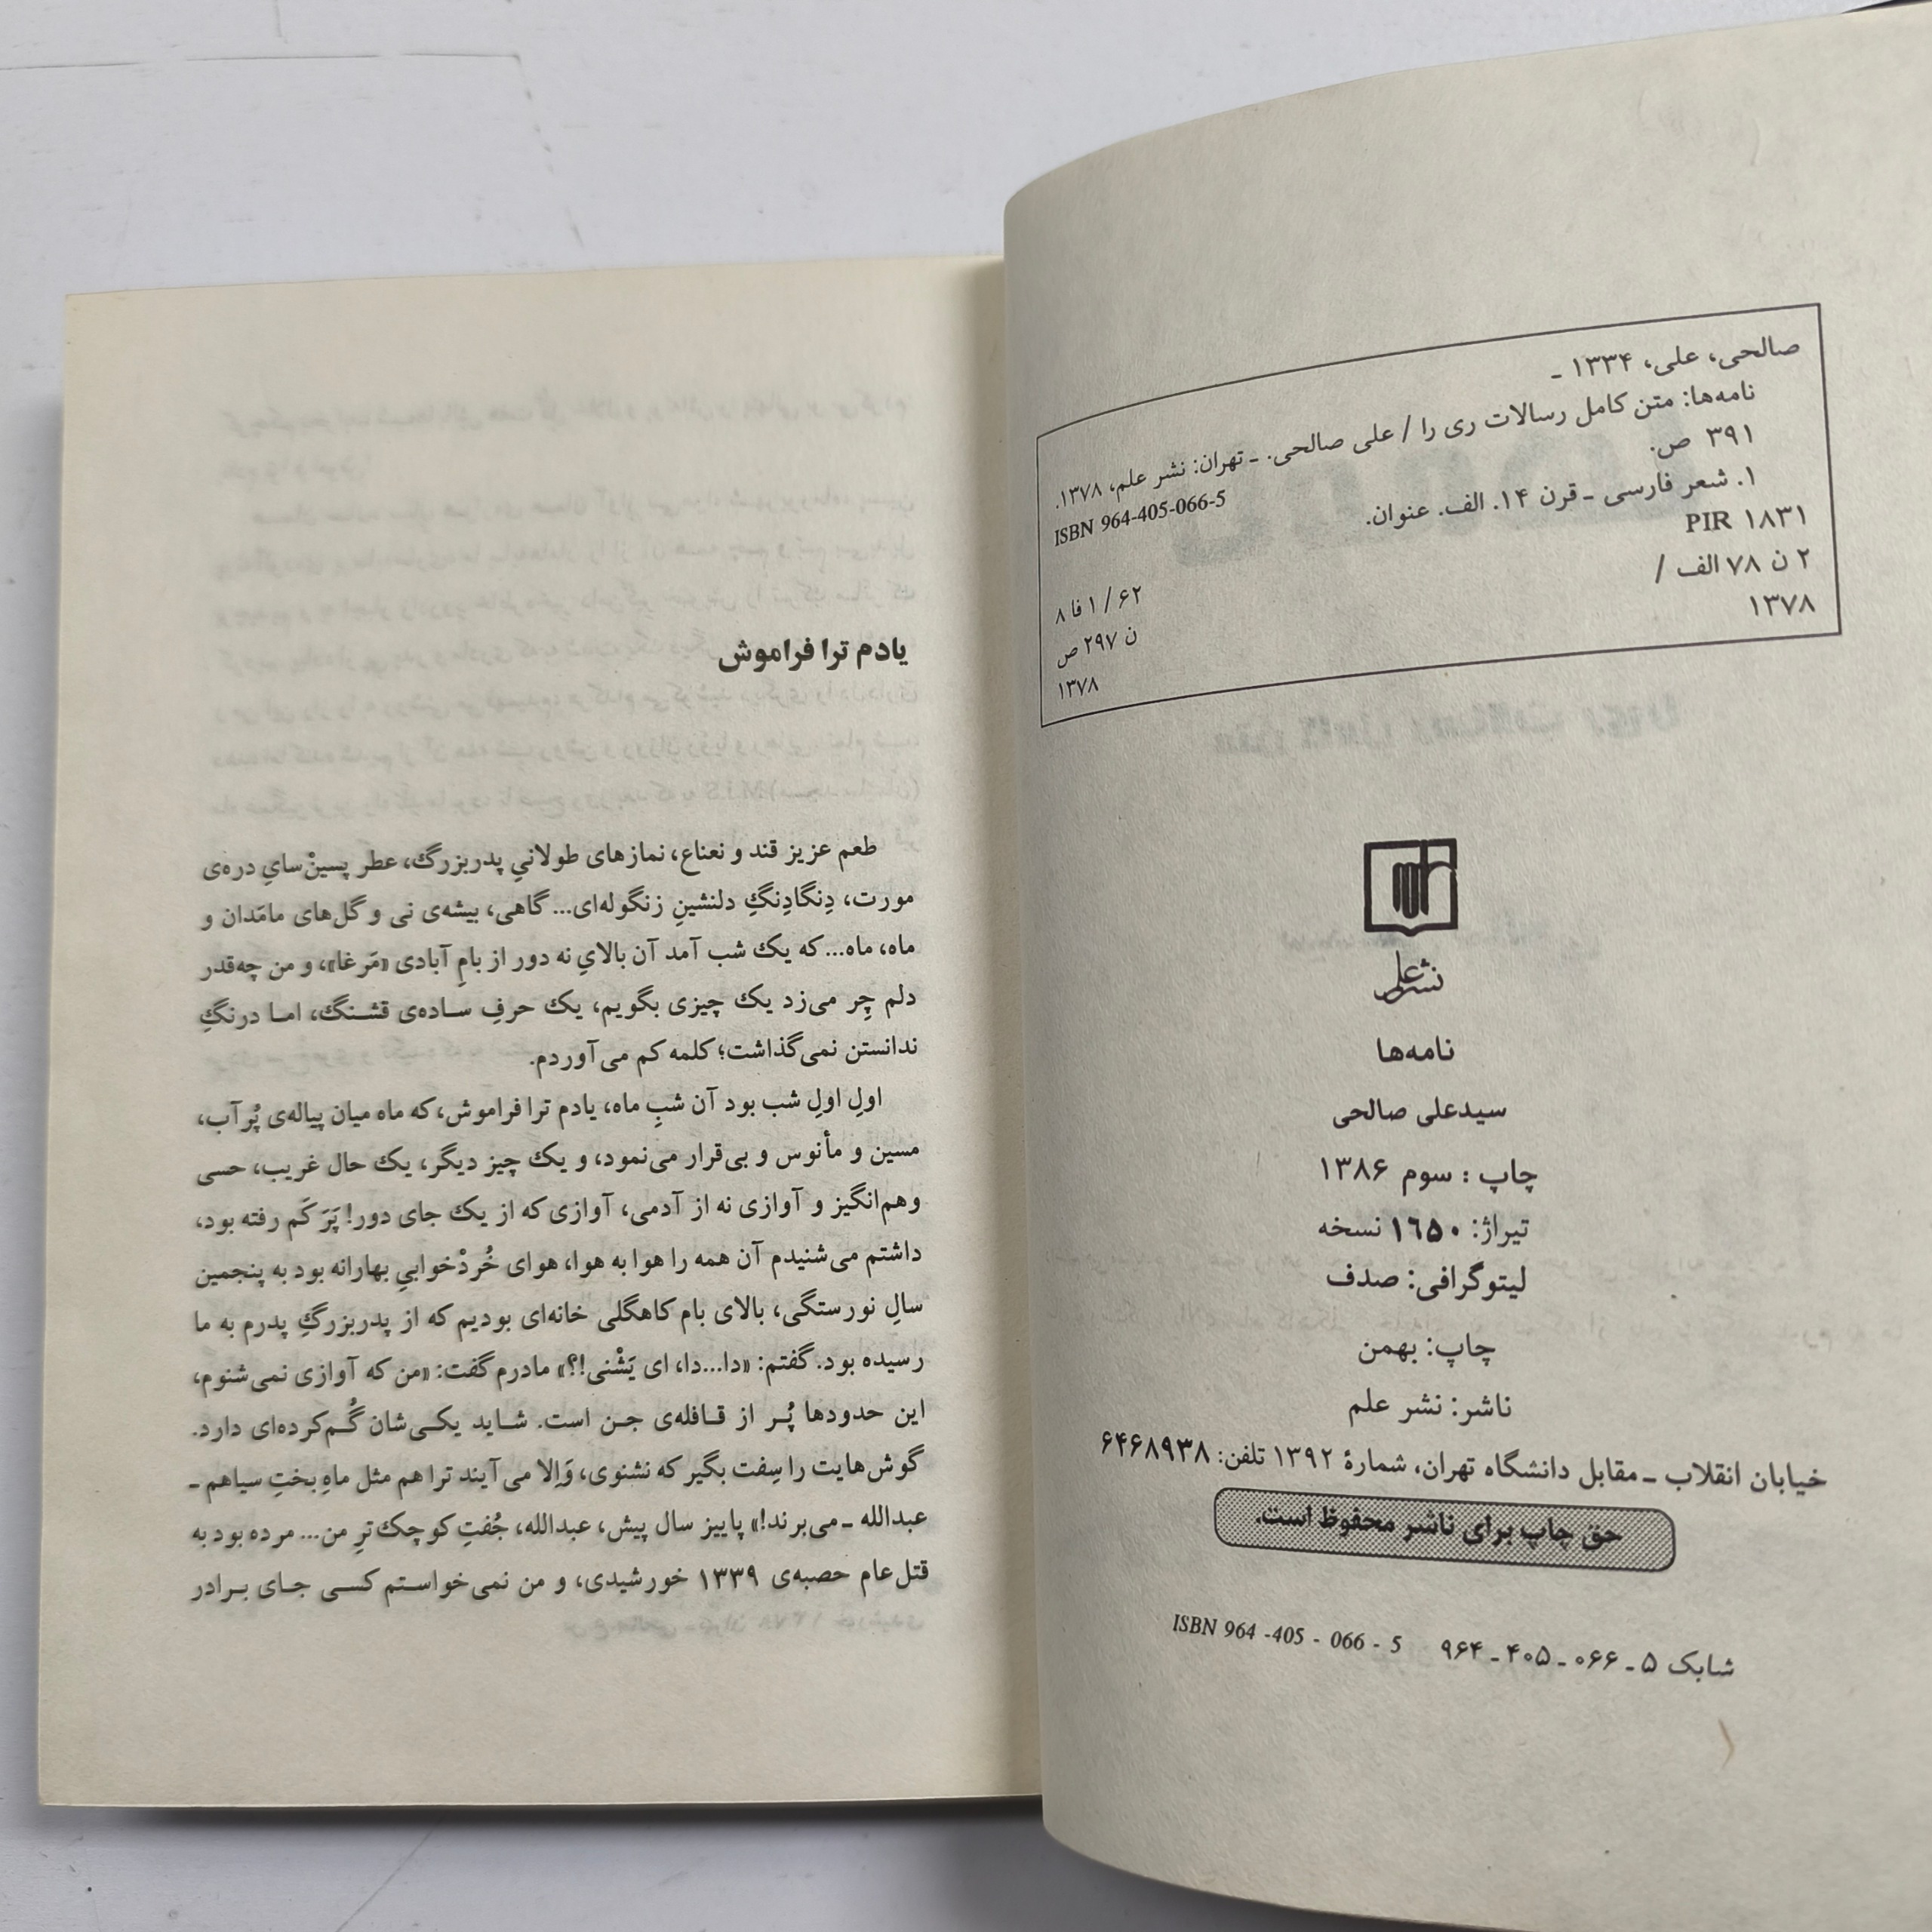 صالحی، علی، ۱۳۳۴ ـ
نامه‌ها: متن کامل رسالات ری را / علی صالحی. ـ تهران: نشر علم، ۱۳۷۸.
۳۹۱ ص.
ISBN 964-405-066-5
۱. شعر فارسی ـ قرن ۱۴. الف. عنوان.
PIR ۱۸۳۱
۲ ن ۷۸ الف /
۱۳۷۸
۶۲ / ۱ فا ۸
ن ۲۹۷ ص
۱۳۷۸
نشر علم
نامه‌ها
سیدعلی صالحی
چاپ : سوم ۱۳۸۶
تیراژ: ۱۶۵۰ نسخه
لیتوگرافی: صدف
چاپ: بهمن
ناشر: نشر علم
خیابان انقلاب ـ مقابل دانشگاه تهران، شمارهٔ ۱۳۹۲ تلفن: ۶۴۶۸۹۳۸
حق چاپ برای ناشر محفوظ است.
شابک ۵ ـ ۰۶۶ ـ ۴۰۵ ـ ۹۶۴ ISBN 964 -405 - 066 - 5
یادم ترا فراموش
طعم عزیز قند و نعناع، نمازهای طولانیِ پدربزرگ، عطر پسینْ‌سایِ دره‌ی
مورت، دِنگادِنگِ دلنشینِ زنگوله‌ای... گاهی، بیشه‌ی نی و گل‌های مامَدان و
ماه، ماه... که یک شب آمد آن بالایِ نه دور از بامِ آبادی «مَرغا»، و من چه‌قدر
دلم چِر می‌زد یک چیزی بگویم، یک حرفِ ساده‌ی قشنگ، اما درنگِ
ندانستن نمی‌گذاشت؛ کلمه کم می‌آوردم.
اولِ اولِ شب بود آن شبِ ماه، یادم ترا فراموش، که ماه میان پیاله‌ی پُرآب،
مسین و مأنوس و بی‌قرار می‌نمود، و یک چیز دیگر، یک حال غریب، حسی
وهم‌انگیز و آوازی نه از آدمی، آوازی که از یک جای دور! پَرَکَم رفته بود،
داشتم می‌شنیدم آن همه را هوا به هوا، هوای خُردْخوابیِ بهارانه بود به پنجمین
سالِ نورستگی، بالای بام کاهگلی خانه‌ای بودیم که از پدربزرگِ پدرم به ما
رسیده بود. گفتم: «دا...دا، ای یَشْنی!؟» مادرم گفت: «من که آوازی نمی‌شنوم،
این حدودها پُر از قافله‌ی جن است. شاید یکی‌شان گُم‌کرده‌ای دارد.
گوش‌هایت را سِفت بگیر که نشنوی، وَاِلا می‌آیند ترا هم مثل ماهِ بختِ سیاهم ـ
عبدالله ـ می‌برند!» پاییز سال پیش، عبدالله، جُفتِ کوچک‌ترِ من... مرده بود به
قتل‌عام حصبه‌ی ۱۳۳۹ خورشیدی، و من نمی‌خواستم کسی جای برادر